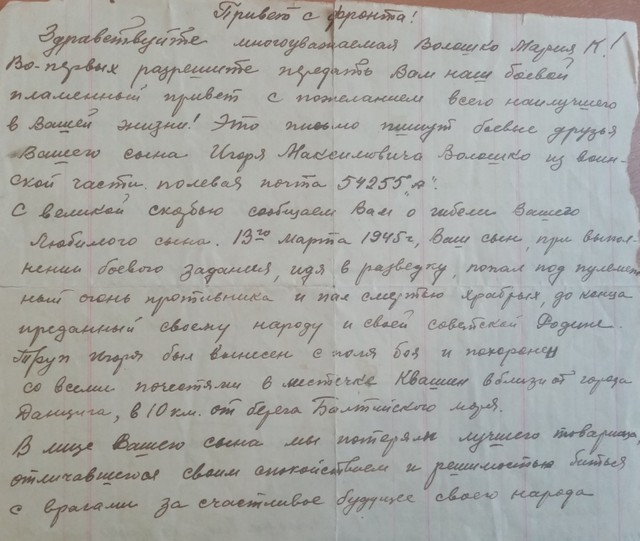 Привет с фронта!
Здравствуйте многоуважаемая Волошко Мария К.!
Во-первых разрешите передать Вам наш боевой
пламенный привет с пожеланием всего наилучшего
в Вашей жизни! Это письмо пишут боевые друзья
Вашего сына Игоря Максимовича Волошко из воин-
ской части. полевая почта 54255 „А".
С великой скорбью сообщаем Вам о гибели Вашего
Любимого сына. 13го марта 1945г, Ваш сын, при выпол-
нении боевого задания, идя в разведку, попал под пулемет-
ный огонь противника и пал смертью храбрых, до конца
преданный своему народу и своей советской Родине.
Труп Игоря был вынесен с поля боя и похоронен
со всеми почестями в местечке Квашин вблизи от города
Данцига, в 10 км. от берега Балтийского моря.
В лице Вашего сына мы потеряли лучшего товарища,
отличавшегося своим спокойствием и решимостью биться
с врагами за счастливое будущее своего народа